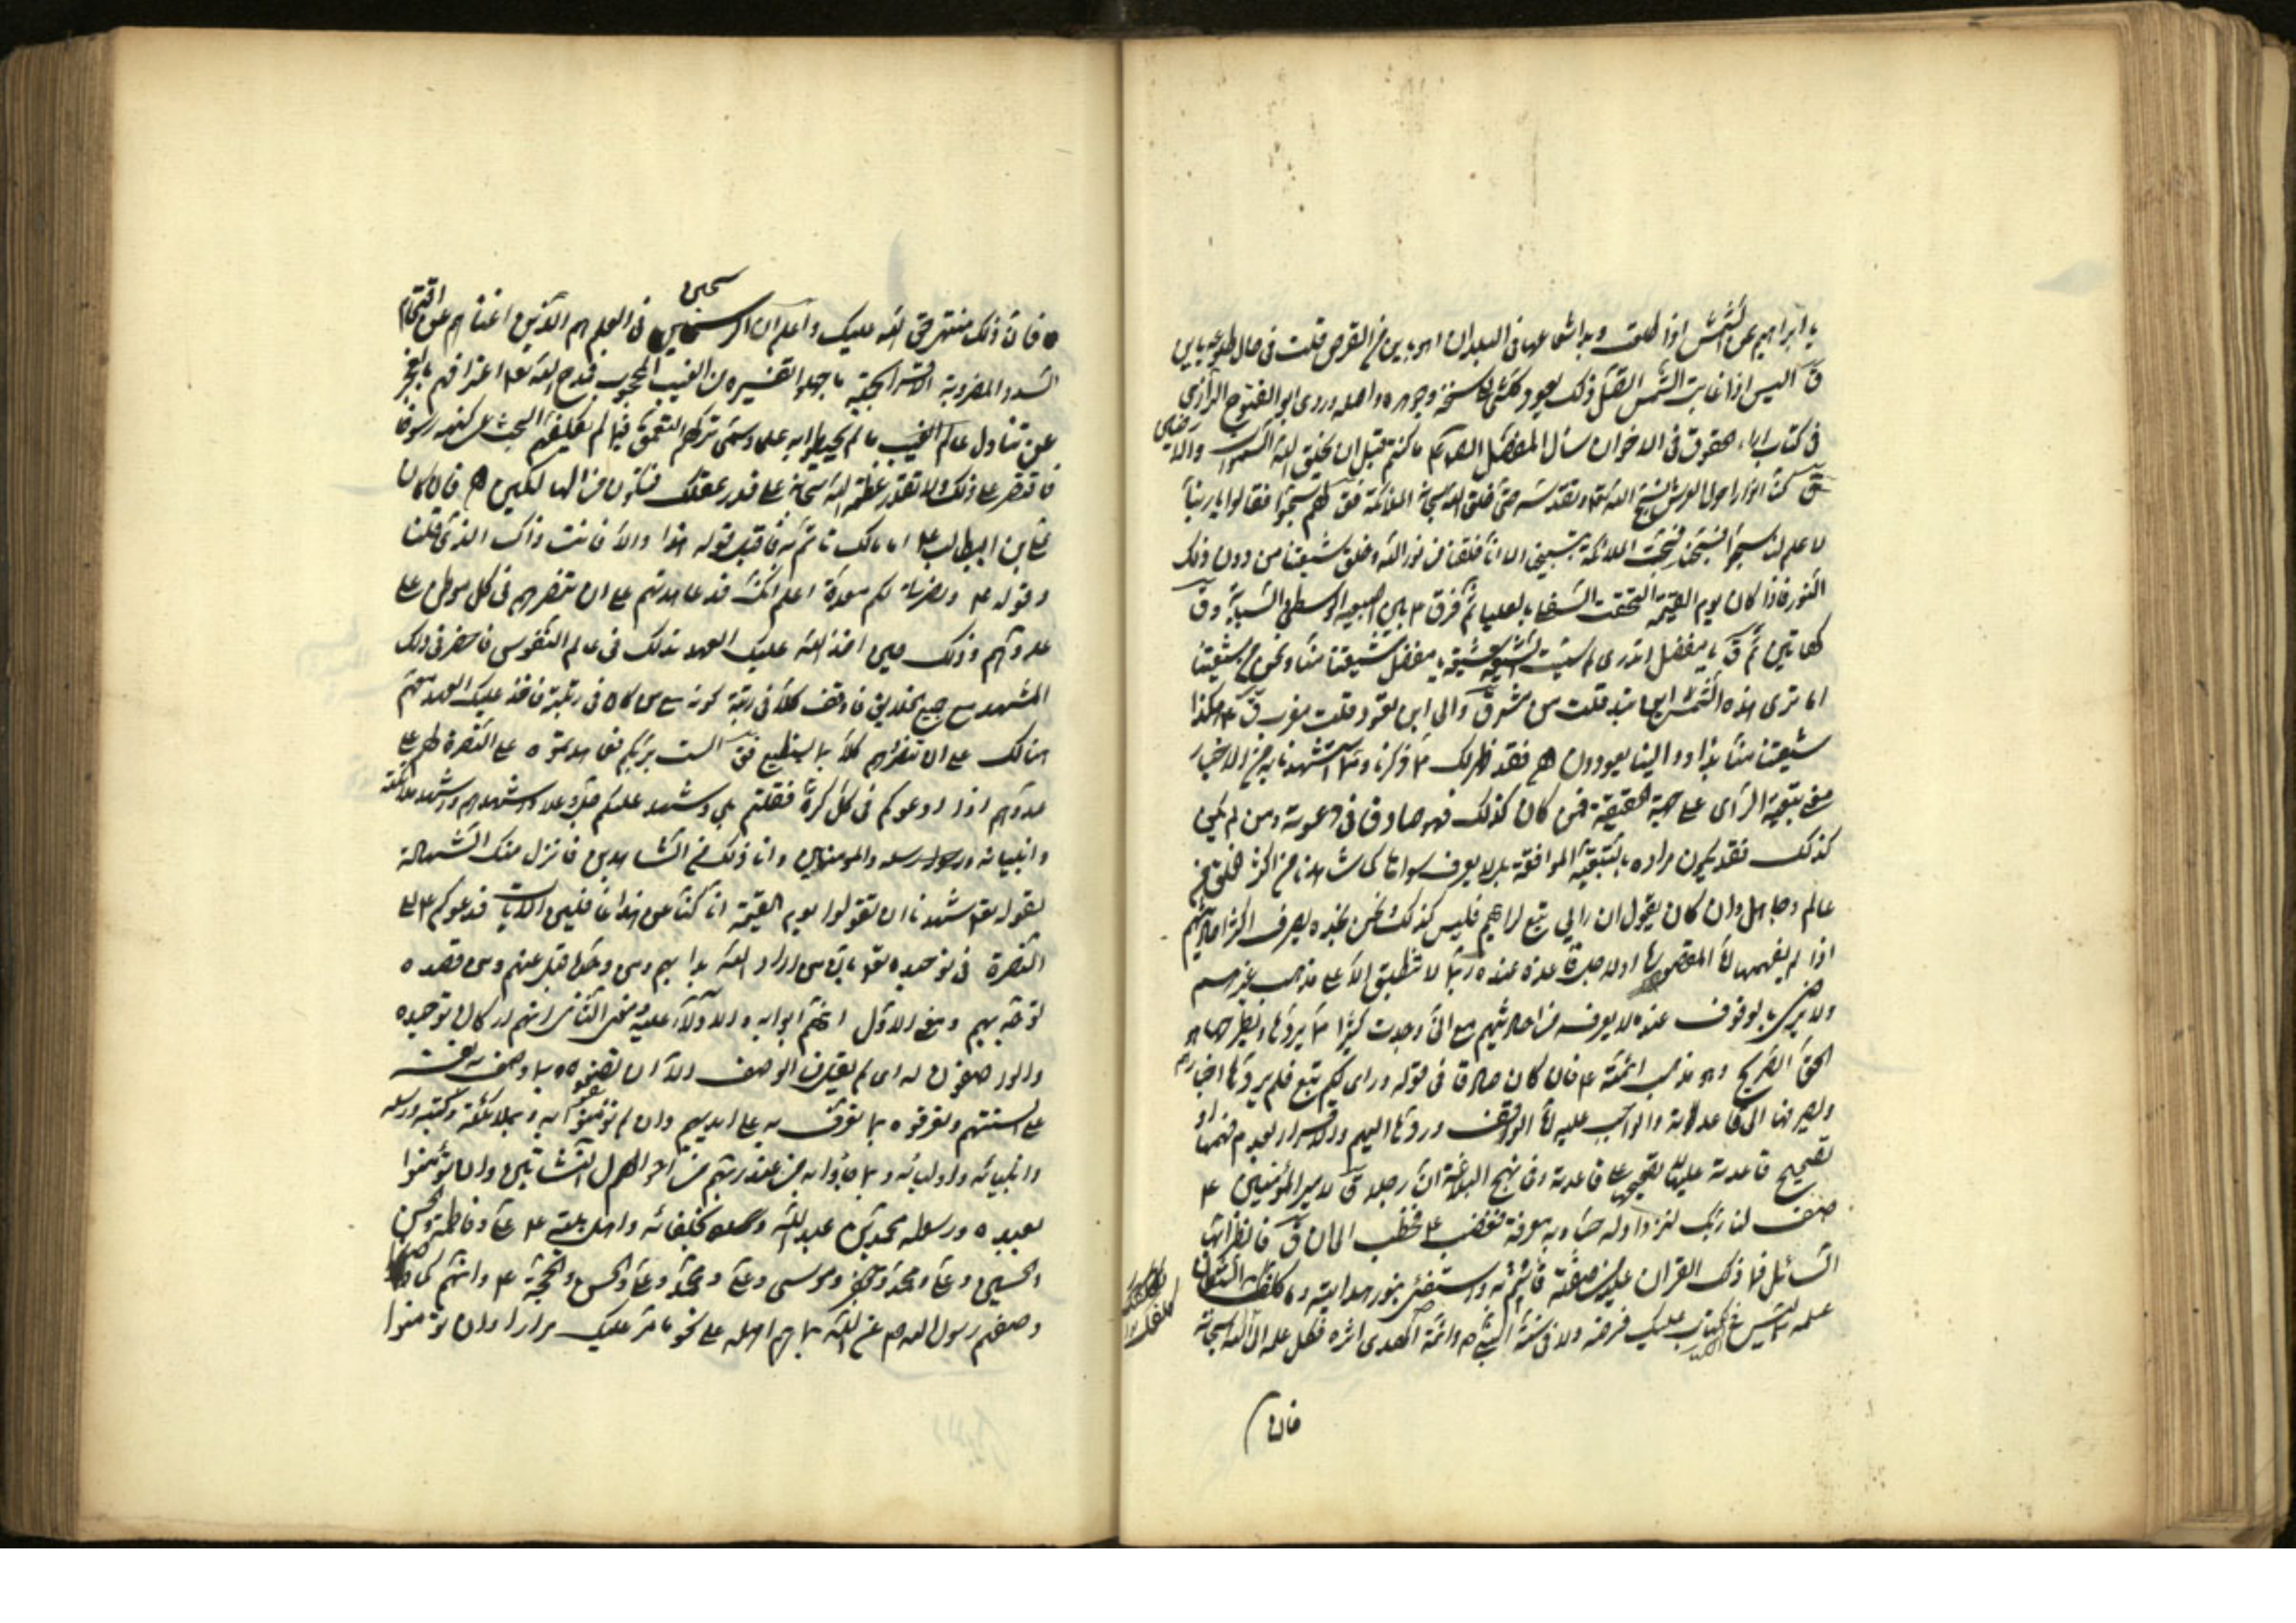 يا ابراهيم عن الشمس اذا طلعت وبدا شعاعها فى البلدان اهو باين من القرص قلت فى حال طلوعه باين
ق اليس اذا غابت الشمس اتصل ذلك يعود كل شئ الى سنخه وجوهره واصله وروى ابو الفتوح الرازى
فى كتاب اداء حقوق الاخوان سئل المفضل الصادق ما كنتم قبل ان يخلق الله السموات والارضين
ق كنا انوارا حول العرش نسبح الله ونقدسه حتى خلق الله سبحانه الملائكة فق لهم سبحوا فقالوا يا ربنا
لا علم لنا فسبحنا فسبحت الملائكة بتسبيحنا الا انا خلقنا من نور الله وخلق شيعتنا من دون ذلك
النور فاذا كان يوم القيمة التحقت السفلى بالعليا ثم فرق ع بين اصبعيه الوسطى والسبابة وق
كهاتين ثم ق يا مفضل اتدرى لم سميت الشيعة شيعة يا مفضل شيعتنا منا ونحن من شيعتنا
اما ترى هذه الشمس اين تبدو قلت من مشرق والى اين تعود قلت مغرب ق ع هكذا
شيعتنا منا بدؤا والينا يعودون فقد ظهر لك مما ذكرنا وما استشهدنا به من الاخبار
معنى تبعية الرأى على جهة الحقيقة فمن كان كذلك فهو صادق فى دعوته ومن لم يكن
كذلك فقد يكون مراده بالتبعية الموافقة بل لا يعرف سواها كما شاهدنا من اكثر الخلق من
عالم وجاهل وان كان يقول ان رايى تبع لرايهم فليس كذلك نحن نجده يصرف اكثر احاديثهم
اذا لم يفهمها الى قاعدة عنده ربما لا تنطبق الا على مذهب غيرهم
ولا يرضى بالوقوف عنده لا يعرفه من احاديثهم مع انى وجدت كثيرا ما يردها وينظر
الحق الصريح وهو مذهب ائمته ع فان كان صادقا فى قوله ورايى لكم تبع فلم يرد اخبارهم
ويصرفها الى قاعدته والواجب عليه الوقف وردها اليهم والاقرار بعدم فهمها او
تصحيح قاعدته عليها فى نهج البلاغة ان رجلا ق لامير المؤمنين ع
صف لنا ربك لنزداد له حبا وبه معرفة فغضب ع فخطب الى ان ق فانظر ايها
السائل فما دلك القران عليه من صفته فائتم به واستضئ بنور هدايته وما كلفك الشيطان
علمه مما ليس فى الكتاب عليك فرضه ولا فى سنة النبى ص وائمة الهدى اثره فكل علمه الى الله سبحانه
فان
فان ذلك منتهى حق الله عليك واعلم ان الراسخين فى العلم هم الذين اغناهم عن اقتحام
السدد المضروبة الاقرار بجملة ما جهلوا تفسيره من الغيب المحجوب فمدح الله تعالى اعترافهم بالعجز
عن تناول عالم الغيب ما لم يحيطوا به علما وسمى تركهم التعمق فيما لم يكلفهم البحث عن كنهه رسوخا
فاقتصر على ذلك ولا تقدر عظمة الله سبحانه على قدر عقلك فتكون من الهالكين فان كان
على بن ابيطالب ع امامك تأتم به فاقبل قوله هذا والا فانت وذاك الذى قلنا
وقوله ع ونصرتى لكم معدة اعلم انك قد عاهدتهم على ان تنصرهم فى كل موطن على
عدوهم وذلك حين اخذ الله عليك العهد بذلك فى عالم النفوس فاحضر فى ذلك
المشهد جميع الخلايق فاوقف كلا فى رتبة كونه فاخذ عليك العهد منهم
هنالك على ان تنصرهم كلا بما يستطيع فق الست بربكم فعاهدتموه على النصرة لهم على
عدوهم اذا ادعوكم فى كل كرة فقلتم بلى وشهد عليكم جل وعلا واشهدهم واشهد ملائكته
وانبيائه ورسله والمؤمنين وانا ذلك من الشاهدين فانزل منك الشهادة
بقوله تعالى شهدنا ان تقولوا يوم القيمة انا كنا عن هذا غافلين الايات فدعوكم ع الى
النصرة فى توحيده تعالى بان من اراد الله بدا بهم ومن وحده قبل عنهم ومن قصده
توجه بهم ومعنى الاول انهم ابوابه والادلاء عليه ومعنى الثانى انهم اركان توحيده
والواصفون له اى لم يقبل من الوصف الا ان تصفوه بما وصف به نفسه
على السنتهم وتعرفوه بما تعرف به على ايديهم وان لم تؤمنوا به وبملائكته وكتبه ورسله
وانبيائه واوليائه وما جاؤا به من عند ربهم من احوال النشأتين وان تؤمنوا
بعبده ورسوله محمد بن عبد الله وخلفائه واهل بيته ع على وفاطمة والحسن
والحسين وعلى ومحمد وجعفر وموسى وعلى ومحمد وعلى والحسن والحجة ع وانهم كما
وصفهم رسول الله ص عن الله بما هم اهله على نحو ما مر عليك مرارا وان تؤمنوا